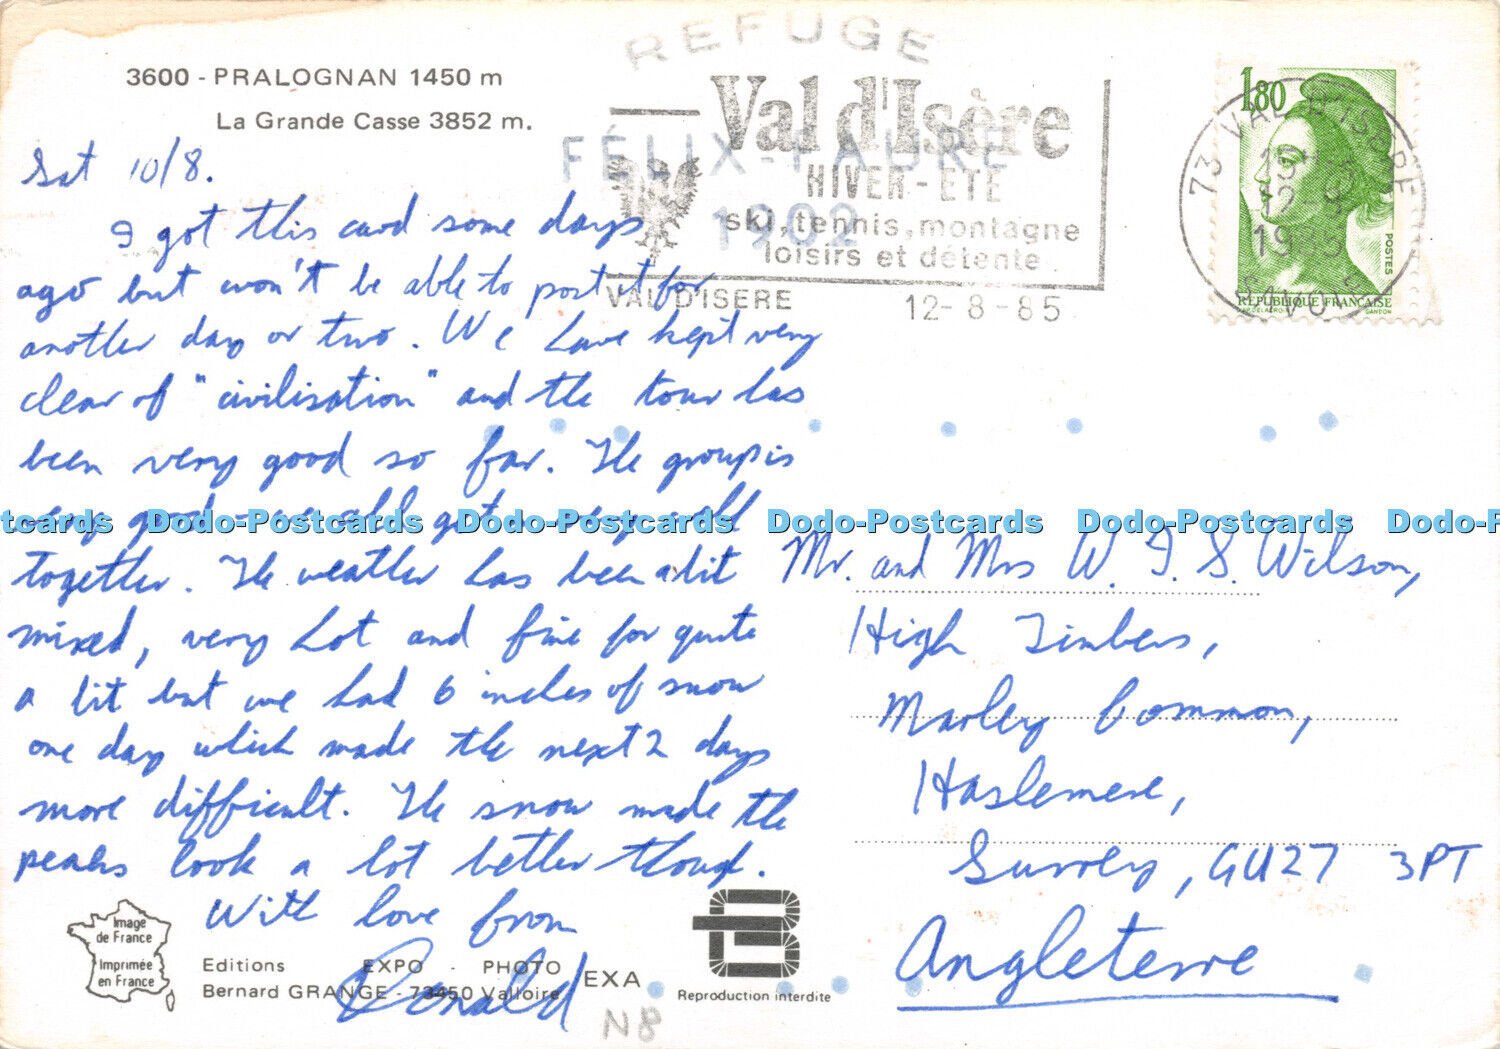 3600 - PRALOGNAN 1450 m
La Grande Casse 3852 m.
REFUGE
FÉLIX-FAURE
1902
Val d'Isère
HIVER - ETE
ski, tennis, montagne
loisirs et détente
VAL D'ISERE 12-8-85
1,80
POSTES
REPUBLIQUE FRANÇAISE
GANDON
73 VAL D'ISERE
12-8
1985
SAVOIE
Sat 10/8.
I got this card some days
ago but won't be able to post it for
another day or two. We have kept very
clear of "civilisation" and the tour has
been very good so far. The group is
very good - we all get on very well
together. The weather has been a bit
mixed, very hot and fine for quite
a bit but we had 6 inches of snow
one day which made the next 2 days
more difficult. The snow made the
peaks look a lot better though.
With love from
Donald
Mr. and Mrs W. I. S. Wilson,
High Timbers,
Marley Common,
Haslemere,
Surrey, GU27 3PT
Angleterre
Image
de France
Imprimée
en France
Editions EXPO - PHOTO
Bernard GRANGE - 73450 Valloire
EXA
Reproduction interdite
N8
tcards Dodo-Postcards Dodo-Postcards Dodo-Postcards Dodo-Postcards Dodo-P